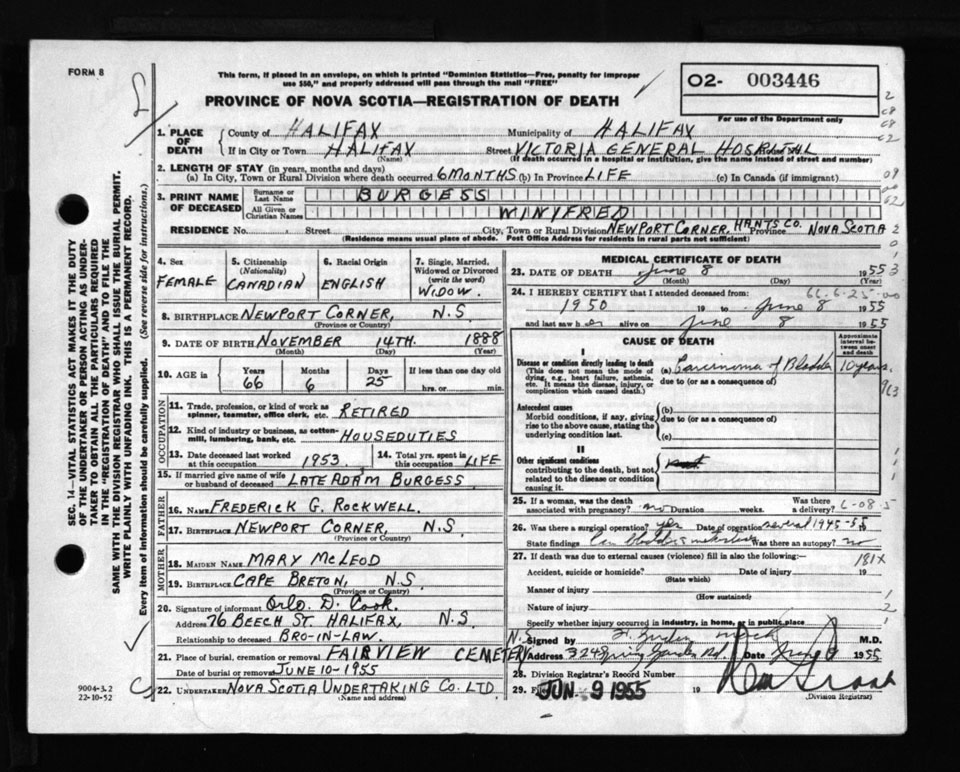 FORM 8
This form, if placed in an envelope, on which is printed "Dominion Statistics—Free, penalty for improper
use $50," and properly addressed will pass through the mail "FREE"
PROVINCE OF NOVA SCOTIA—REGISTRATION OF DEATH
O2- 003446
For use of the Department only
1. PLACE OF DEATH
County of HALIFAX Municipality of HALIFAX
If in City or Town HALIFAX Street VICTORIA GENERAL HOSPITAL
(Name) (If death occurred in a hospital or institution, give the name instead of street and number)
2. LENGTH OF STAY (in years, months and days)
(a) In City, Town or Rural Division where death occurred 6 MONTHS (b) In Province LIFE (c) In Canada (if immigrant)
3. PRINT NAME OF DECEASED
Surname or Last Name BURGESS
All Given or Christian Names WINIFRED
RESIDENCE No. Street City, Town or Rural Division NEWPORT CORNER, HANTS CO. Province NOVA SCOTIA
(Residence means usual place of abode. Post Office Address for residents in rural parts not sufficient)
4. Sex
FEMALE
5. Citizenship
(Nationality)
CANADIAN
6. Racial Origin
ENGLISH
7. Single, Married, Widowed or Divorced
(write the word)
WIDOW.
8. BIRTHPLACE NEWPORT CORNER, N.S.
(Province or Country)
9. DATE OF BIRTH NOVEMBER 14TH. 1888
(Month) (Day) (Year)
10. AGE in
Years Months Days If less than one day old
66 6 25 hrs. or min.
OCCUPATION
11. Trade, profession, or kind of work as spinner, teamster, office clerk, etc. RETIRED
12. Kind of industry or business, as cotton-mill, lumbering, bank, etc. HOUSEDUTIES
13. Date deceased last worked at this occupation 1953.
14. Total yrs. spent in this occupation LIFE
15. If married give name of wife or husband of deceased LATE ADAM BURGESS
FATHER
16. NAME FREDERICK G. ROCKWELL.
17. BIRTHPLACE NEWPORT CORNER, N.S.
(Province or Country)
MOTHER
18. MAIDEN NAME MARY McLEOD
19. BIRTHPLACE CAPE BRETON, N.S.
(Province or Country)
20. Signature of informant Orlo. D. Cook.
Address 76 BEECH ST. HALIFAX, N.S.
Relationship to deceased BRO-IN-LAW.
21. Place of burial, cremation or removal FAIRVIEW CEMETERY
Date of burial or removal JUNE 10-1955
22. UNDERTAKER NOVA SCOTIA UNDERTAKING CO. LTD. N.S.
(Name and address)
MEDICAL CERTIFICATE OF DEATH
23. DATE OF DEATH June 8 1955
(Month) (Day) (Year)
24. I HEREBY CERTIFY that I attended deceased from: 66-6-25-00
1950 to June 8 1955
and last saw her alive on June 8 1955
CAUSE OF DEATH
Approximate interval between onset and death
I
Disease or condition directly leading to death
(This does not mean the mode of dying, e.g., heart failure, asthenia, etc. It means the disease, injury, or complication which caused death.)
(a) Carcinoma of Bladder 10 years.
due to (or as a consequence of)
Antecedent causes
Morbid conditions, if any, giving rise to the above cause, stating the underlying condition last.
(b)
due to (or as a consequence of)
(c)
II
Other significant conditions
contributing to the death, but not related to the disease or condition causing it.
25. If a woman, was the death associated with pregnancy? no Duration weeks. Was there a delivery?
26. Was there a surgical operation? yes Date of operation several 1945-55
State findings Was there an autopsy? no
27. If death was due to external causes (violence) fill in also the following:—
181X
Accident, suicide or homicide? Date of injury 19
(State which)
Manner of injury
(How sustained)
Nature of injury
Specify whether injury occurred in industry, in home, or in public place
Signed by M.D.
Address 324 Spring Garden Rd. Date June 8 1955
28. Division Registrar's Record Number
29. JUN. 9 1955 19
(Division Registrar)
SEC. 14—VITAL STATISTICS ACT MAKES IT THE DUTY
OF THE UNDERTAKER OR PERSON ACTING AS UNDER-
TAKER TO OBTAIN ALL THE PARTICULARS REQUIRED
IN THE "REGISTRATION OF DEATH" AND TO FILE THE
SAME WITH THE DIVISION REGISTRAR WHO SHALL ISSUE THE BURIAL PERMIT.
WRITE PLAINLY WITH UNFADING INK. THIS IS A PERMANENT RECORD.
Every item of information should be carefully supplied. (See reverse side for instructions.)
9004-3.2
22-10-52